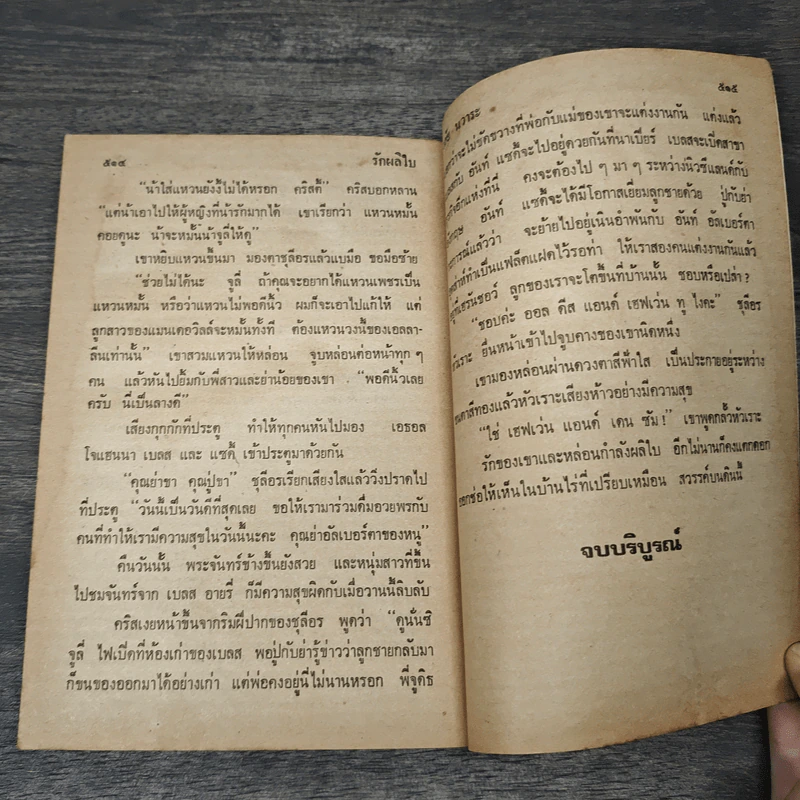 ๕๑๔ รักผลิใบ
“น้าใส่แหวนยังงี้ไม่ได้หรอก คริสตี้” คริสบอกหลาน
“แต่น้าเอาไปให้ผู้หญิงที่น้ารักมากได้ เขาเรียกว่า แหวนหมั้น
คอยดูนะ น้าจะหมั้นน้าจูลี่ให้ดู”
เขาหยิบแหวนขึ้นมา มองตาชุลีอรแล้วแบมือ ขอมือซ้าย
“ช่วยไม่ได้นะ จูลี่ ถ้าคุณจะอยากได้แหวนเพชรเป็น
แหวนหมั้น หรือว่าแหวนไม่พอดีนิ้ว ผมก็จะเอาไปแก้ให้ แต่
ลูกสาวของแมนเดอวิลล์จะหมั้นทั้งที ต้องแหวนวงนี้ของเอลลา-
ลีนเท่านั้น” เขาสวมแหวนให้หล่อน จูบหล่อนต่อหน้าทุก ๆ
คน แล้วหันไปยิ้มกับพี่สาวและย่าน้อยของเขา “พอดีนิ้วเลย
ครับ นี่เป็นลางดี”
เสียงกุกกักที่ประตู ทำให้ทุกคนหันไปมอง เอธอล
โจแฮนนา เบลส และ แซดี้ เข้าประตูมาด้วยกัน
“คุณย่าขา คุณปู่ขา” ชุลีอรเรียกเสียงใสแล้ววิ่งปราดไป
ที่ประตู “วันนี้เป็นวันดีที่สุดเลย ขอให้เรามาร่วมดื่มอวยพรกับ
คนที่ทำให้เรามีความสุขในวันนี้นะคะ คุณย่าอัลเบอร์ตาของหนู”
คืนวันนั้น พระจันทร์ข้างขึ้นยังสวย และหนุ่มสาวที่ขึ้น
ไปชมจันทร์จาก เบลส อายรี่ ก็มีความสุขผิดกับเมื่อวานนี้ลิบลับ
คริสเงยหน้าขึ้นจากริมฝีปากของชุลีอร พูดว่า “ดูนั่นซิ
จูลี่ ไฟเปิดที่ห้องเก่าของเบลส พอปู่กับย่ารู้ข่าวว่าลูกชายกลับมา
ก็ขนของออกมาได้อย่างเก่า แต่พ่อคงอยู่นี่ไม่นานหรอก พี่จูดิธ
๕๑๕
นวาระ
ว่าจะไม่ขัดขวางที่พ่อกับแม่ของเขาจะแต่งงานกัน แต่งแล้ว
กับ อันท์ แซดี้จะไปอยู่ด้วยกันที่นาเบียร์ เบลสจะเปิดสาขา
อีกแห่งที่นี่ คงจะต้องไป ๆ มา ๆ ระหว่างนิวซีแลนด์กับ
อันท์ แซดี้จะได้มีโอกาสเยี่ยมลูกชายด้วย ปู่กับย่า
แล้วว่า จะย้ายไปอยู่เนินอำพันกับ อันท์ อัลเบอร์ตา
ทำเป็นแฟล็ตแฝดไว้รอท่า ให้เราสองคนแต่งงานกันแล้ว
ลูกของเราจะโตขึ้นที่บ้านนั้น ชอบหรือเปล่า?
“ชอบค่ะ ออล ดีส แอนด์ เฮฟเว่น ทู ไงคะ” ชุลีอร
ยื่นหน้าเข้าไปจูบคางของเขานิดหนึ่ง
เขามองหล่อนผ่านดวงตาสีฟ้าใส เป็นประกายอยู่ระหว่าง
ขนตาสีทองแล้วหัวเราะเสียงห้าวอย่างมีความสุข
“ใช่ เฮฟเว่น แอนด์ เดน ซัม!” เขาพูดกลั้วหัวเราะ
รักของเขาและหล่อนกำลังผลิใบ อีกไม่นานก็คงแตกดอก
ออกช่อให้เห็นในบ้านไร่ที่เปรียบเหมือน สวรรค์บนดินนี้
จบบริบูรณ์